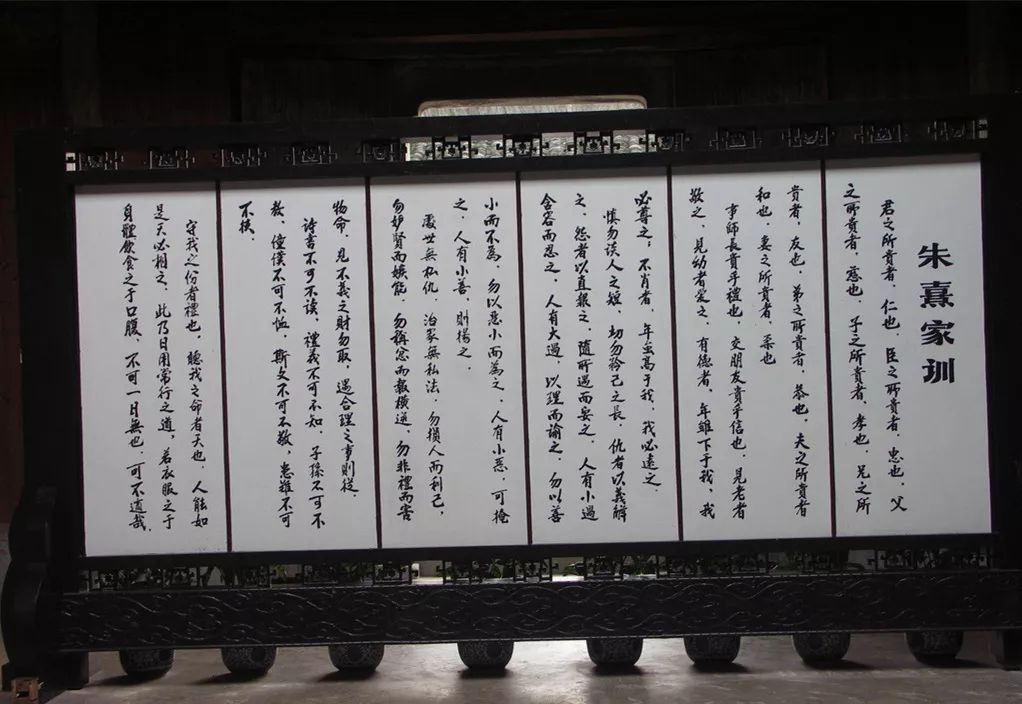 朱熹家训
君之所貴者，仁也，臣之所貴者，忠也，父
之所貴者，慈也，子之所貴者，孝也，兄之所
貴者，友也，弟之所貴者，恭也，夫之所貴者
和也，妻之所貴者，柔也
事師長貴乎禮也，交朋友貴乎信也，見老者
敬之，見幼者愛之，有德者，年雖下于我，我
必尊之，不肖者，年虽高于我，我必遠之，
慎勿谈人之短，切勿矜己之长，仇者以義解
之，怨者以直報之，隨所遇而安之，人有小過
含容而忍之，人有大過，以理而諭之，勿以善
小而不為，勿以惡小而為之，人有小惡，可掩
之，人有小善，則揚之，
處世無私仇，治家無私法，勿損人而利己，
勿妒賢而嫉能 勿稱忿而報橫逆，勿非禮而害
物命，見不義之財勿取，遇合理之事則従，
诗書不可不读，禮義不可不知，子孫不可不
教，僮僕不可不恤，斯文不可不敬，患難不可
不扶，
守我之份者禮也，聽我之命者天也，人能如
是天必相之，此乃日用常行之道，若衣服之于
身體飲食之于口腹，不可一日無也，可不道哉，